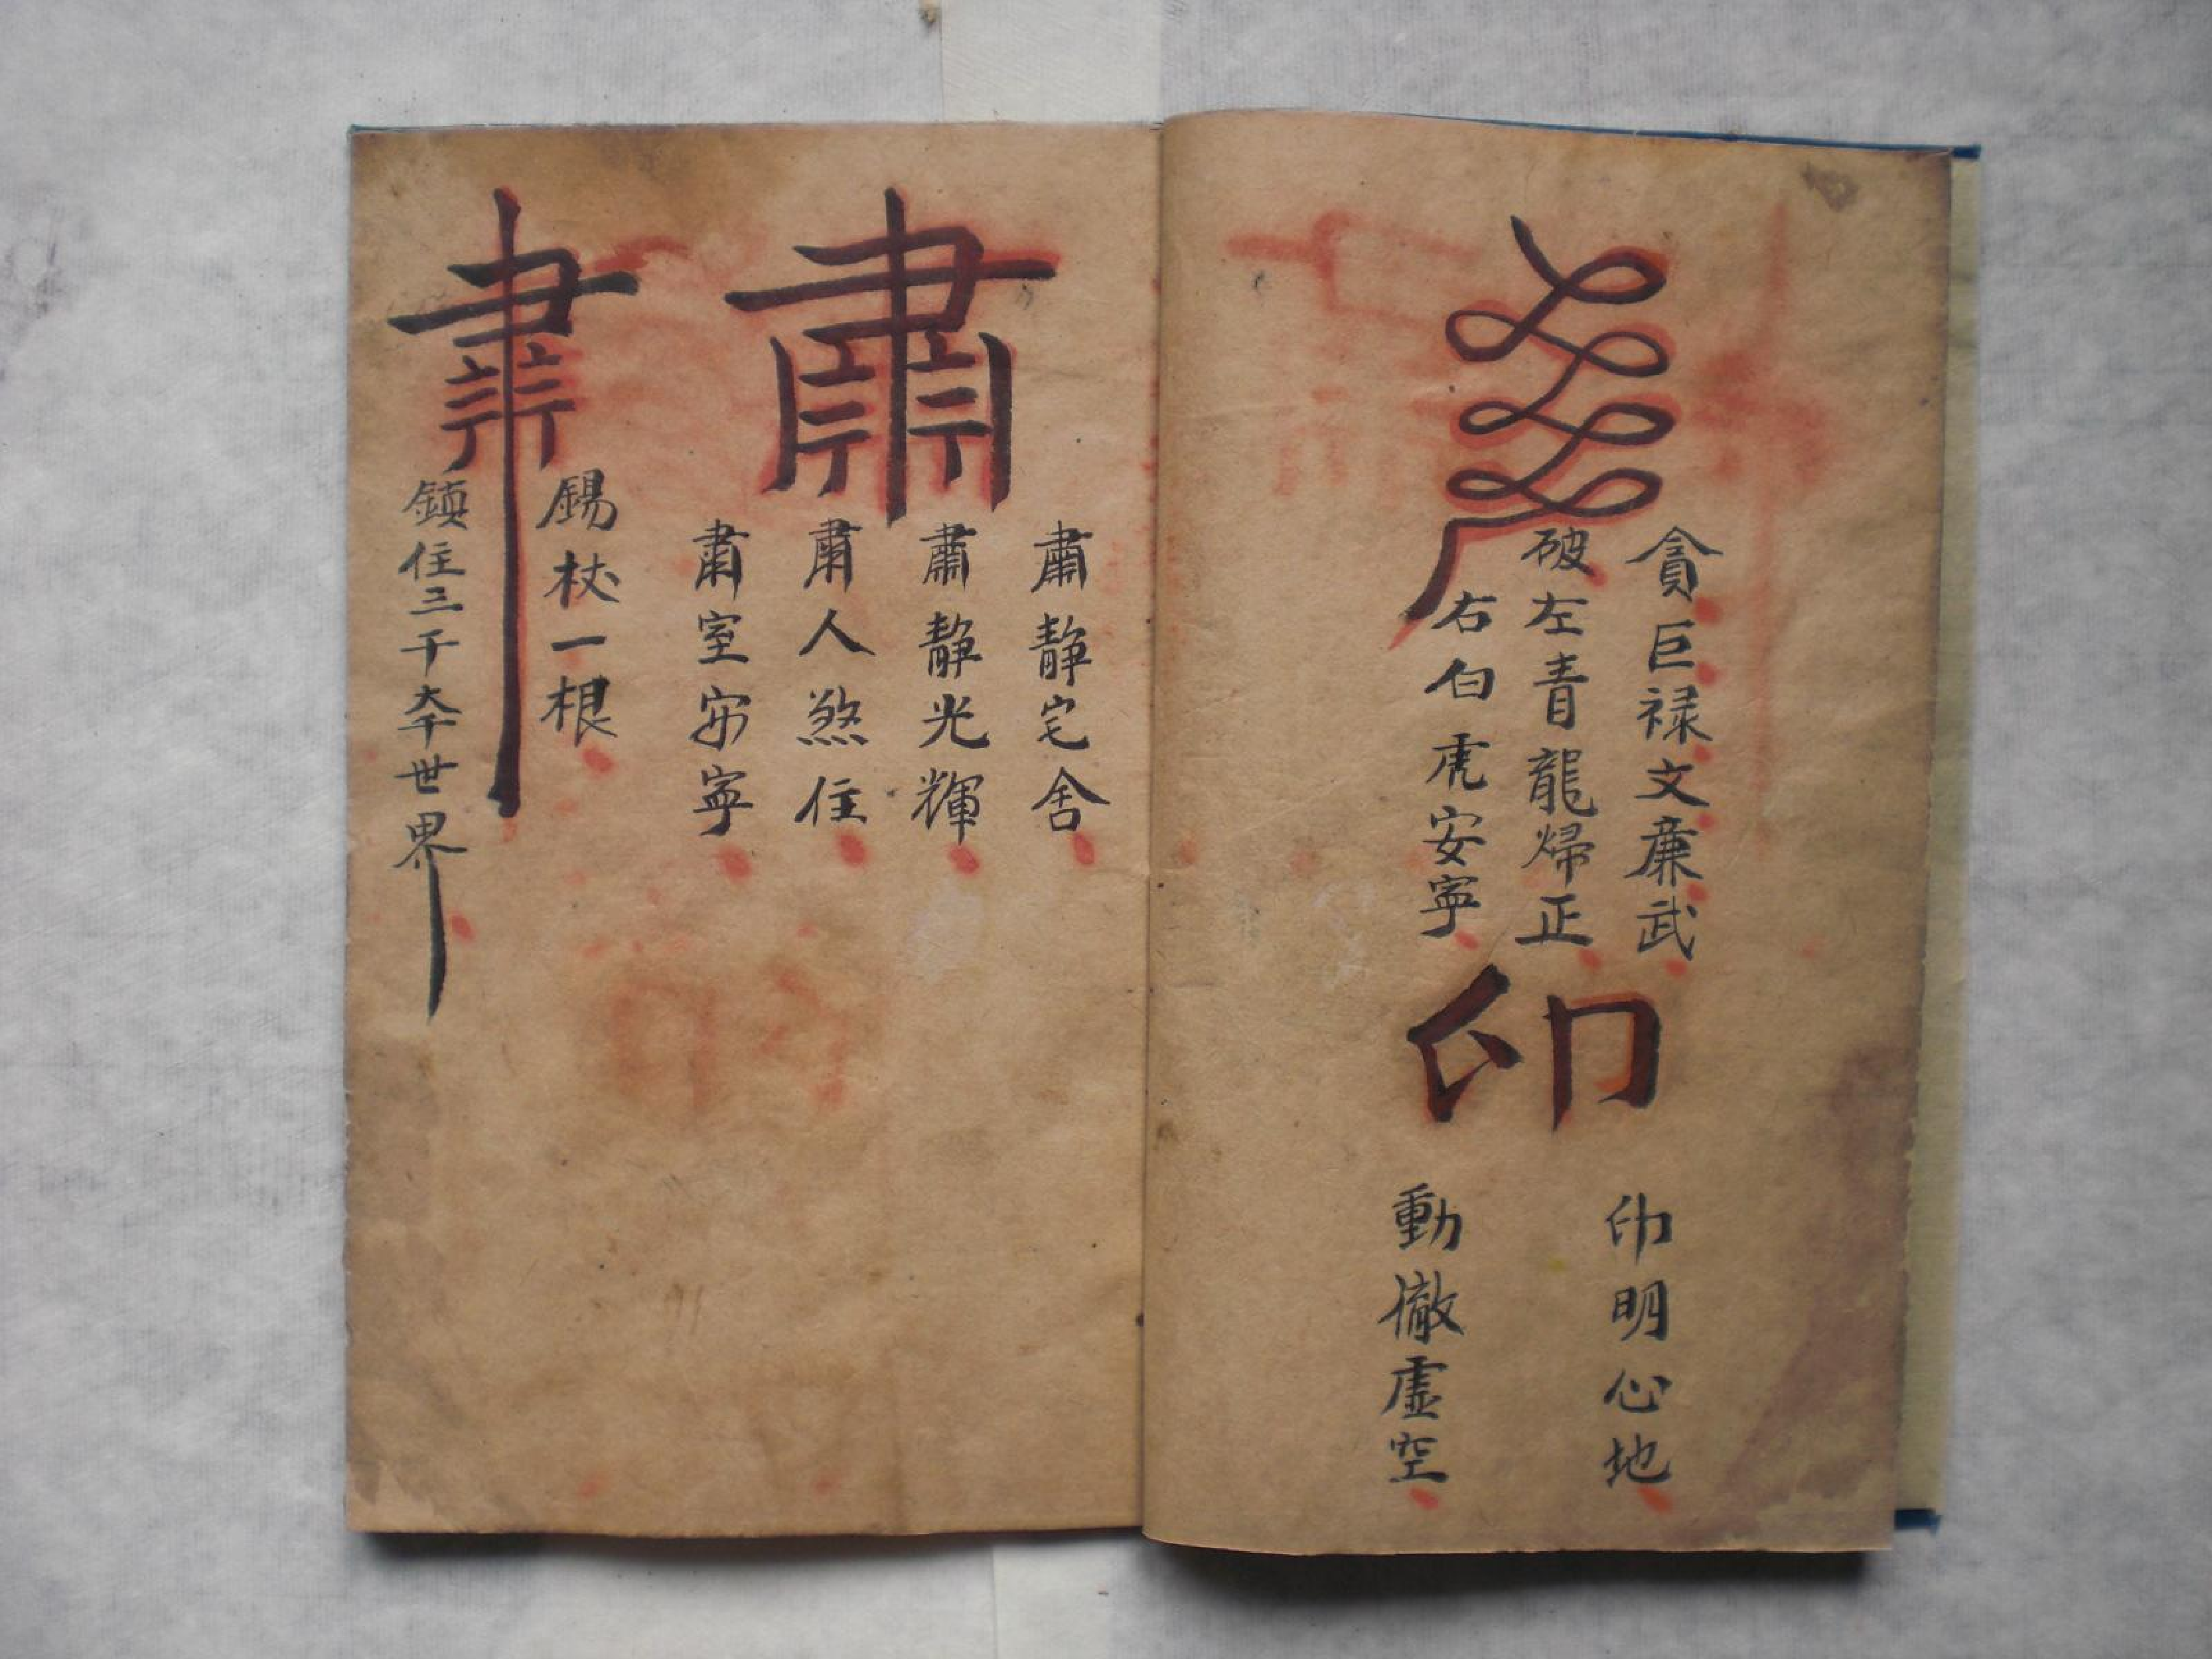 貪巨禄文廉武
破左青龍歸正
右白虎安寧
印
印明心地
動徹虚空
肅
肅静宅舍
肅静光輝
肅人煞住
肅室安寧
錫杖一根
鎮住三千大千世界